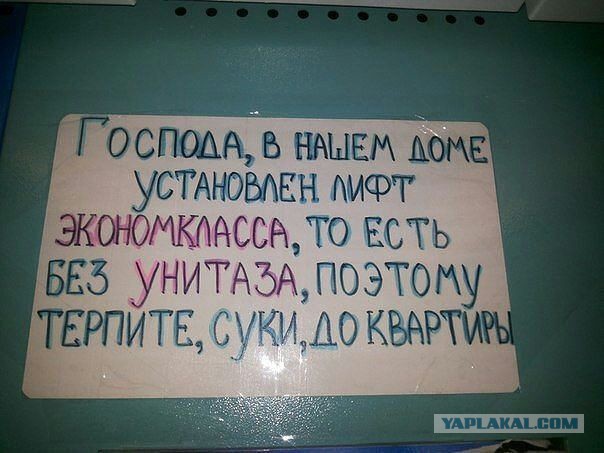 Господа, в нашем доме
установлен лифт
экономкласса, то есть
без унитаза, поэтому
терпите, суки, до квартиры
YAPLAKAL.COM